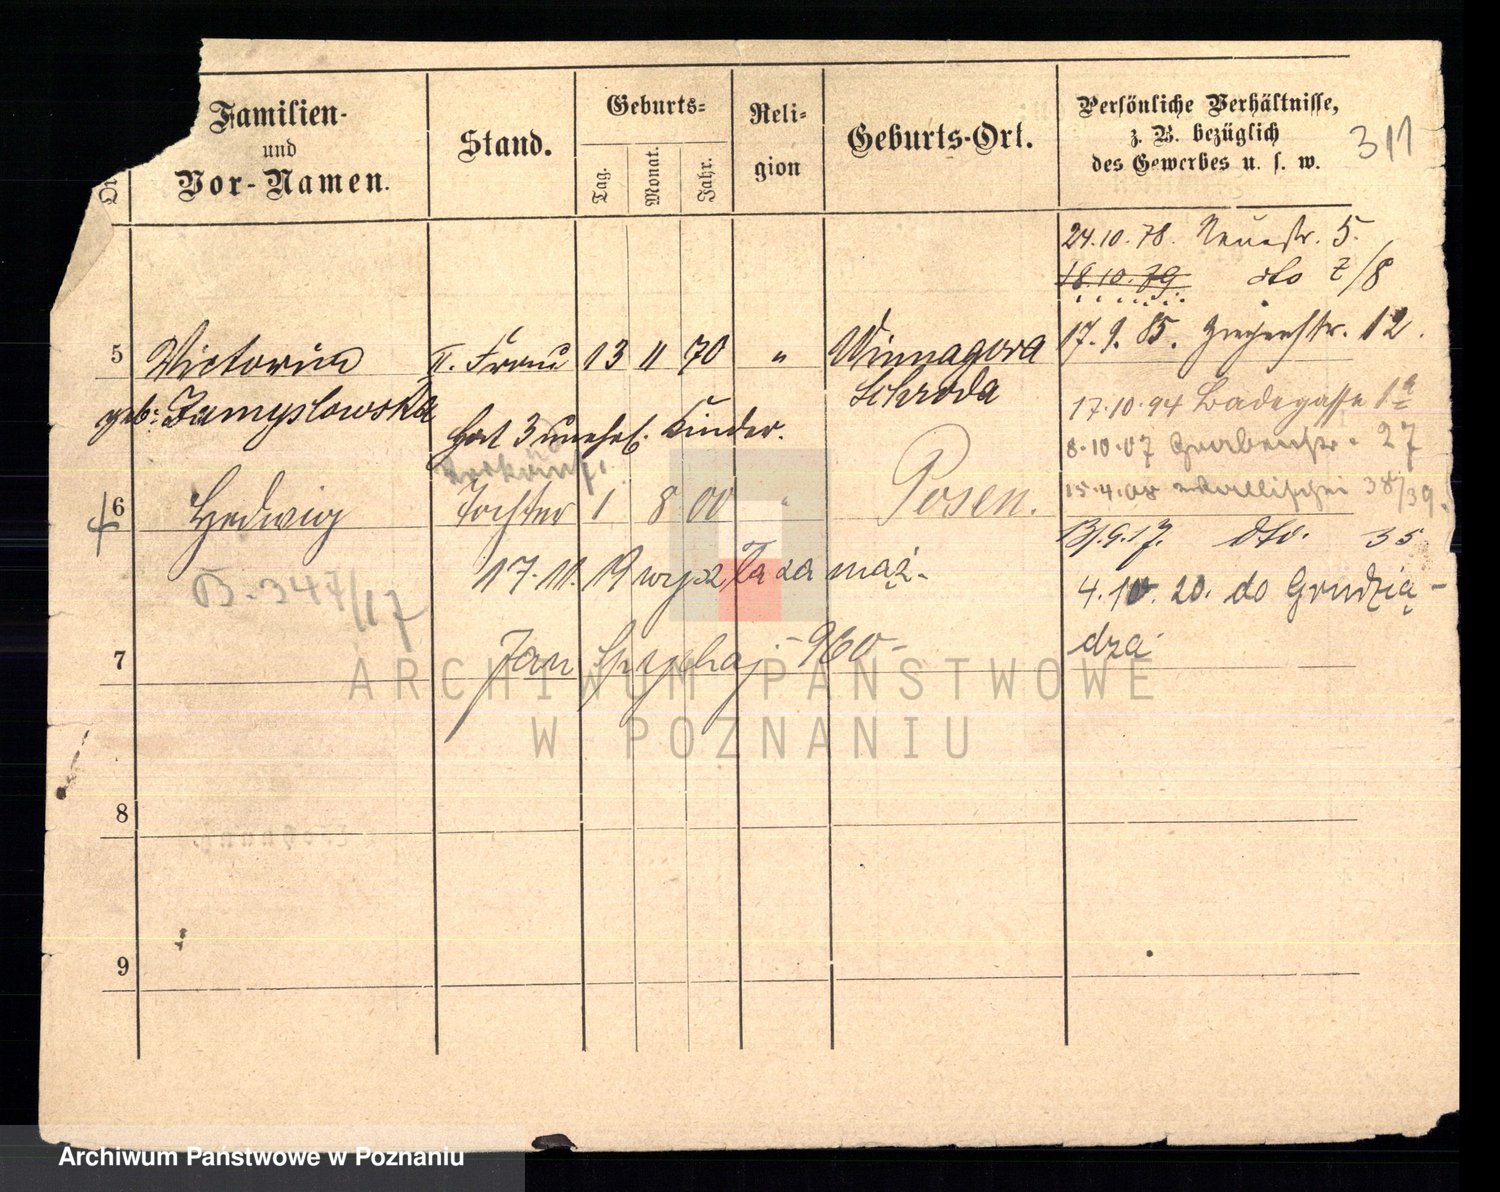 Familien-
und
Vor-Namen.
Stand.
Geburts-
Tag.
Monat.
Jahr.
Reli-
gion
Geburts-Ort.
Persönliche Verhältnisse,
z. B. bezüglich
des Gewerbes u. s. w.
311
24.10.78. Neuestr. 5.
18.10.79 dto 7/8
5 Victoria II. Frau 13 11 70 " Winnagora
17.9.85. 12.
geb: Zamyslowska Schroda
17.10.94 Badegasse 1a
Hat 3 unehel. Kinder.
8.10.07 Grabenstr. 27
6 Hedwig Tochter 1 8 00 " Posen.
15.4.08 Wallischei 38/39.
13/9.17. dto. 35
B. 347/17
17.11.19 wyszła za mąż.
4.10.20. do Grudzią-
dza
7 Jan Spychaj - 960 -
8
9
ARCHIWUM PAŃSTWOWE
W POZNANIU
Archiwum Państwowe w Poznaniu